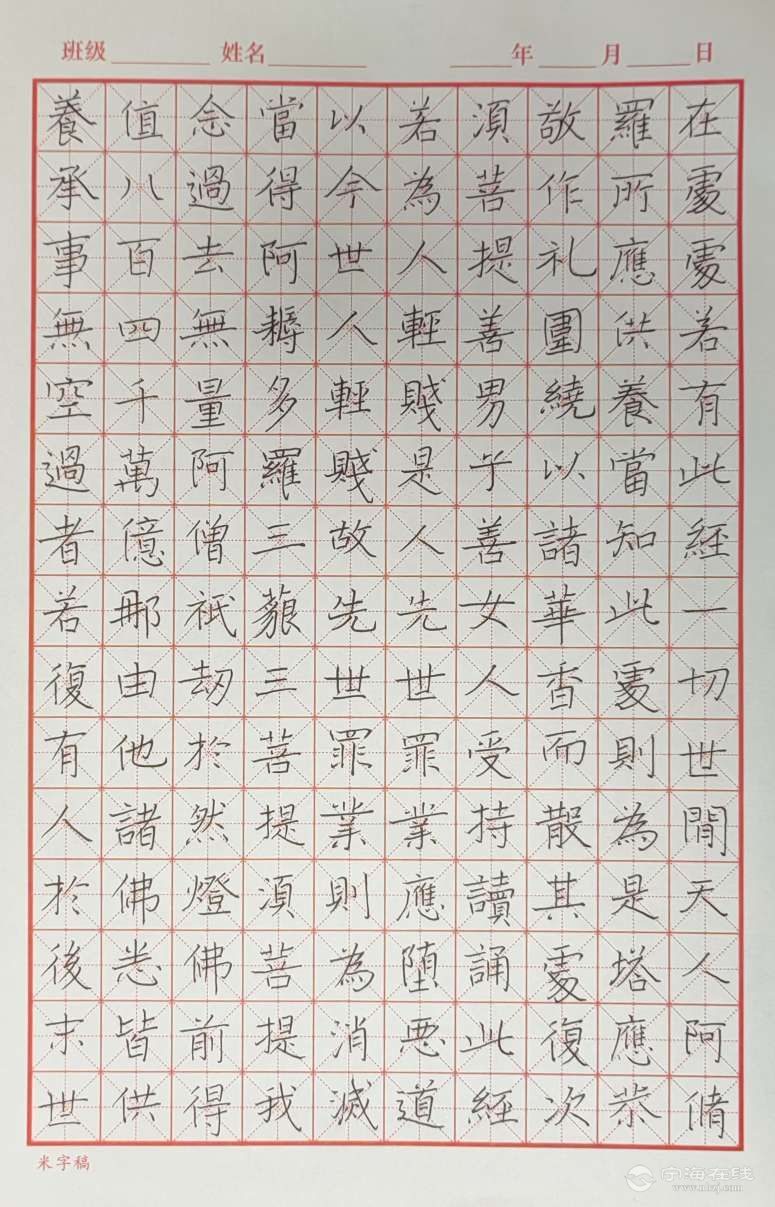 班级 姓名 年 月 日
在處處若有此經一切世間天人阿脩
羅所應供養當知此處則為是塔應恭
敬作礼圍繞以諸華香而散其處復次
須菩提善男子善女人受持讀誦此經
若為人輕賤是人先世罪業應堕惡道
以今世人輕賤故先世罪業則為消滅
當得阿耨多羅三藐三菩提須菩提我
念過去無量阿僧祇劫於然燈佛前得
值八百四千萬億那由他諸佛悉皆供
養承事無空過者若復有人於後末世
米字稿
宁海在线
www.nhzj.com